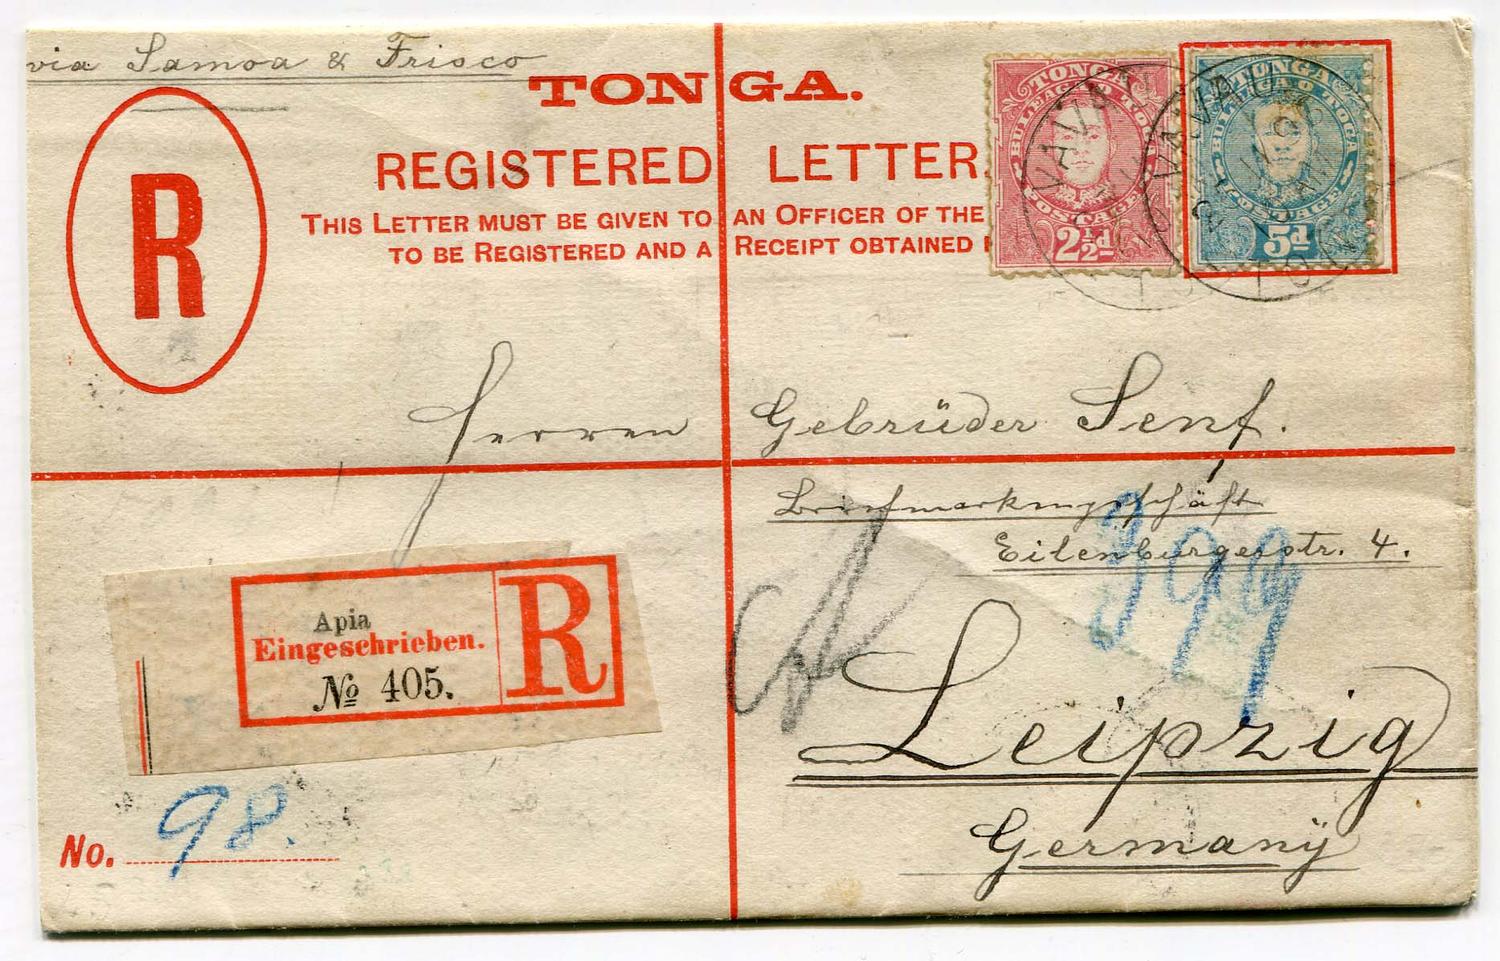 via Samoa & Frisco
TONGA.
R
REGISTERED LETTER.
THIS LETTER MUST BE GIVEN TO AN OFFICER OF THE
TO BE REGISTERED AND A RECEIPT OBTAINED
TONGA
BULEAGA O TOGA
POSTAGE
2½d
TONGA
BULEAGA O TOGA
POSTAGE
5d
VAVAU
VAVAU
Herren Gebrüder Senf.
Briefmarkengeschäft
Eilenburgerstr. 4.
399
Apia
Eingeschrieben.
№ 405.
R
Leipzig
Germanÿ
No. 98.